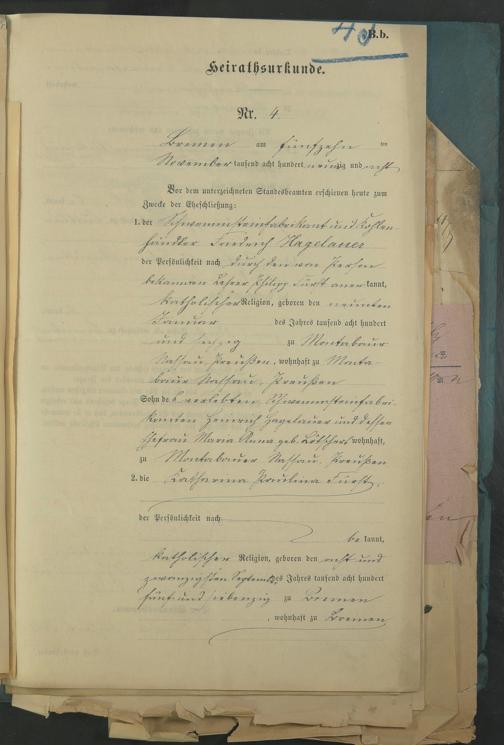 40
B.b.
Heirathsurkunde.
Nr. 4
Bremen am fünfzehn ten
November tausend acht hundert neunzig und acht
Vor dem unterzeichneten Standesbeamten erschienen heute zum
Zwecke der Eheschließung:
1. der Schwemmsteinfabrikant und Kohlen
händler Friedrich Hagelauer
der Persönlichkeit nach durch den von Person
bekannten Lehrer Philipp Fürst anerkannt,
katholischer Religion, geboren den neunten
Januar des Jahres tausend acht hundert
und sechzig zu Montabaur
Nassau, Preußen, wohnhaft zu Monta
baur Nassau, Preußen
Sohn des verlebten Schwemmsteinfabri
kanten Heinrich Hagelauer und dessen
Ehefrau Maria Anna geb. Lötschers wohnhaft,
zu Montabauer Nassau, Preußen
2. die Katharina Paulina Fürst,
der Persönlichkeit nach
be kannt,
katholischer Religion, geboren den acht und
zwanzigsten September des Jahres tausend acht hundert
fünf und siebenzig zu Bremen
, wohnhaft zu Bremen